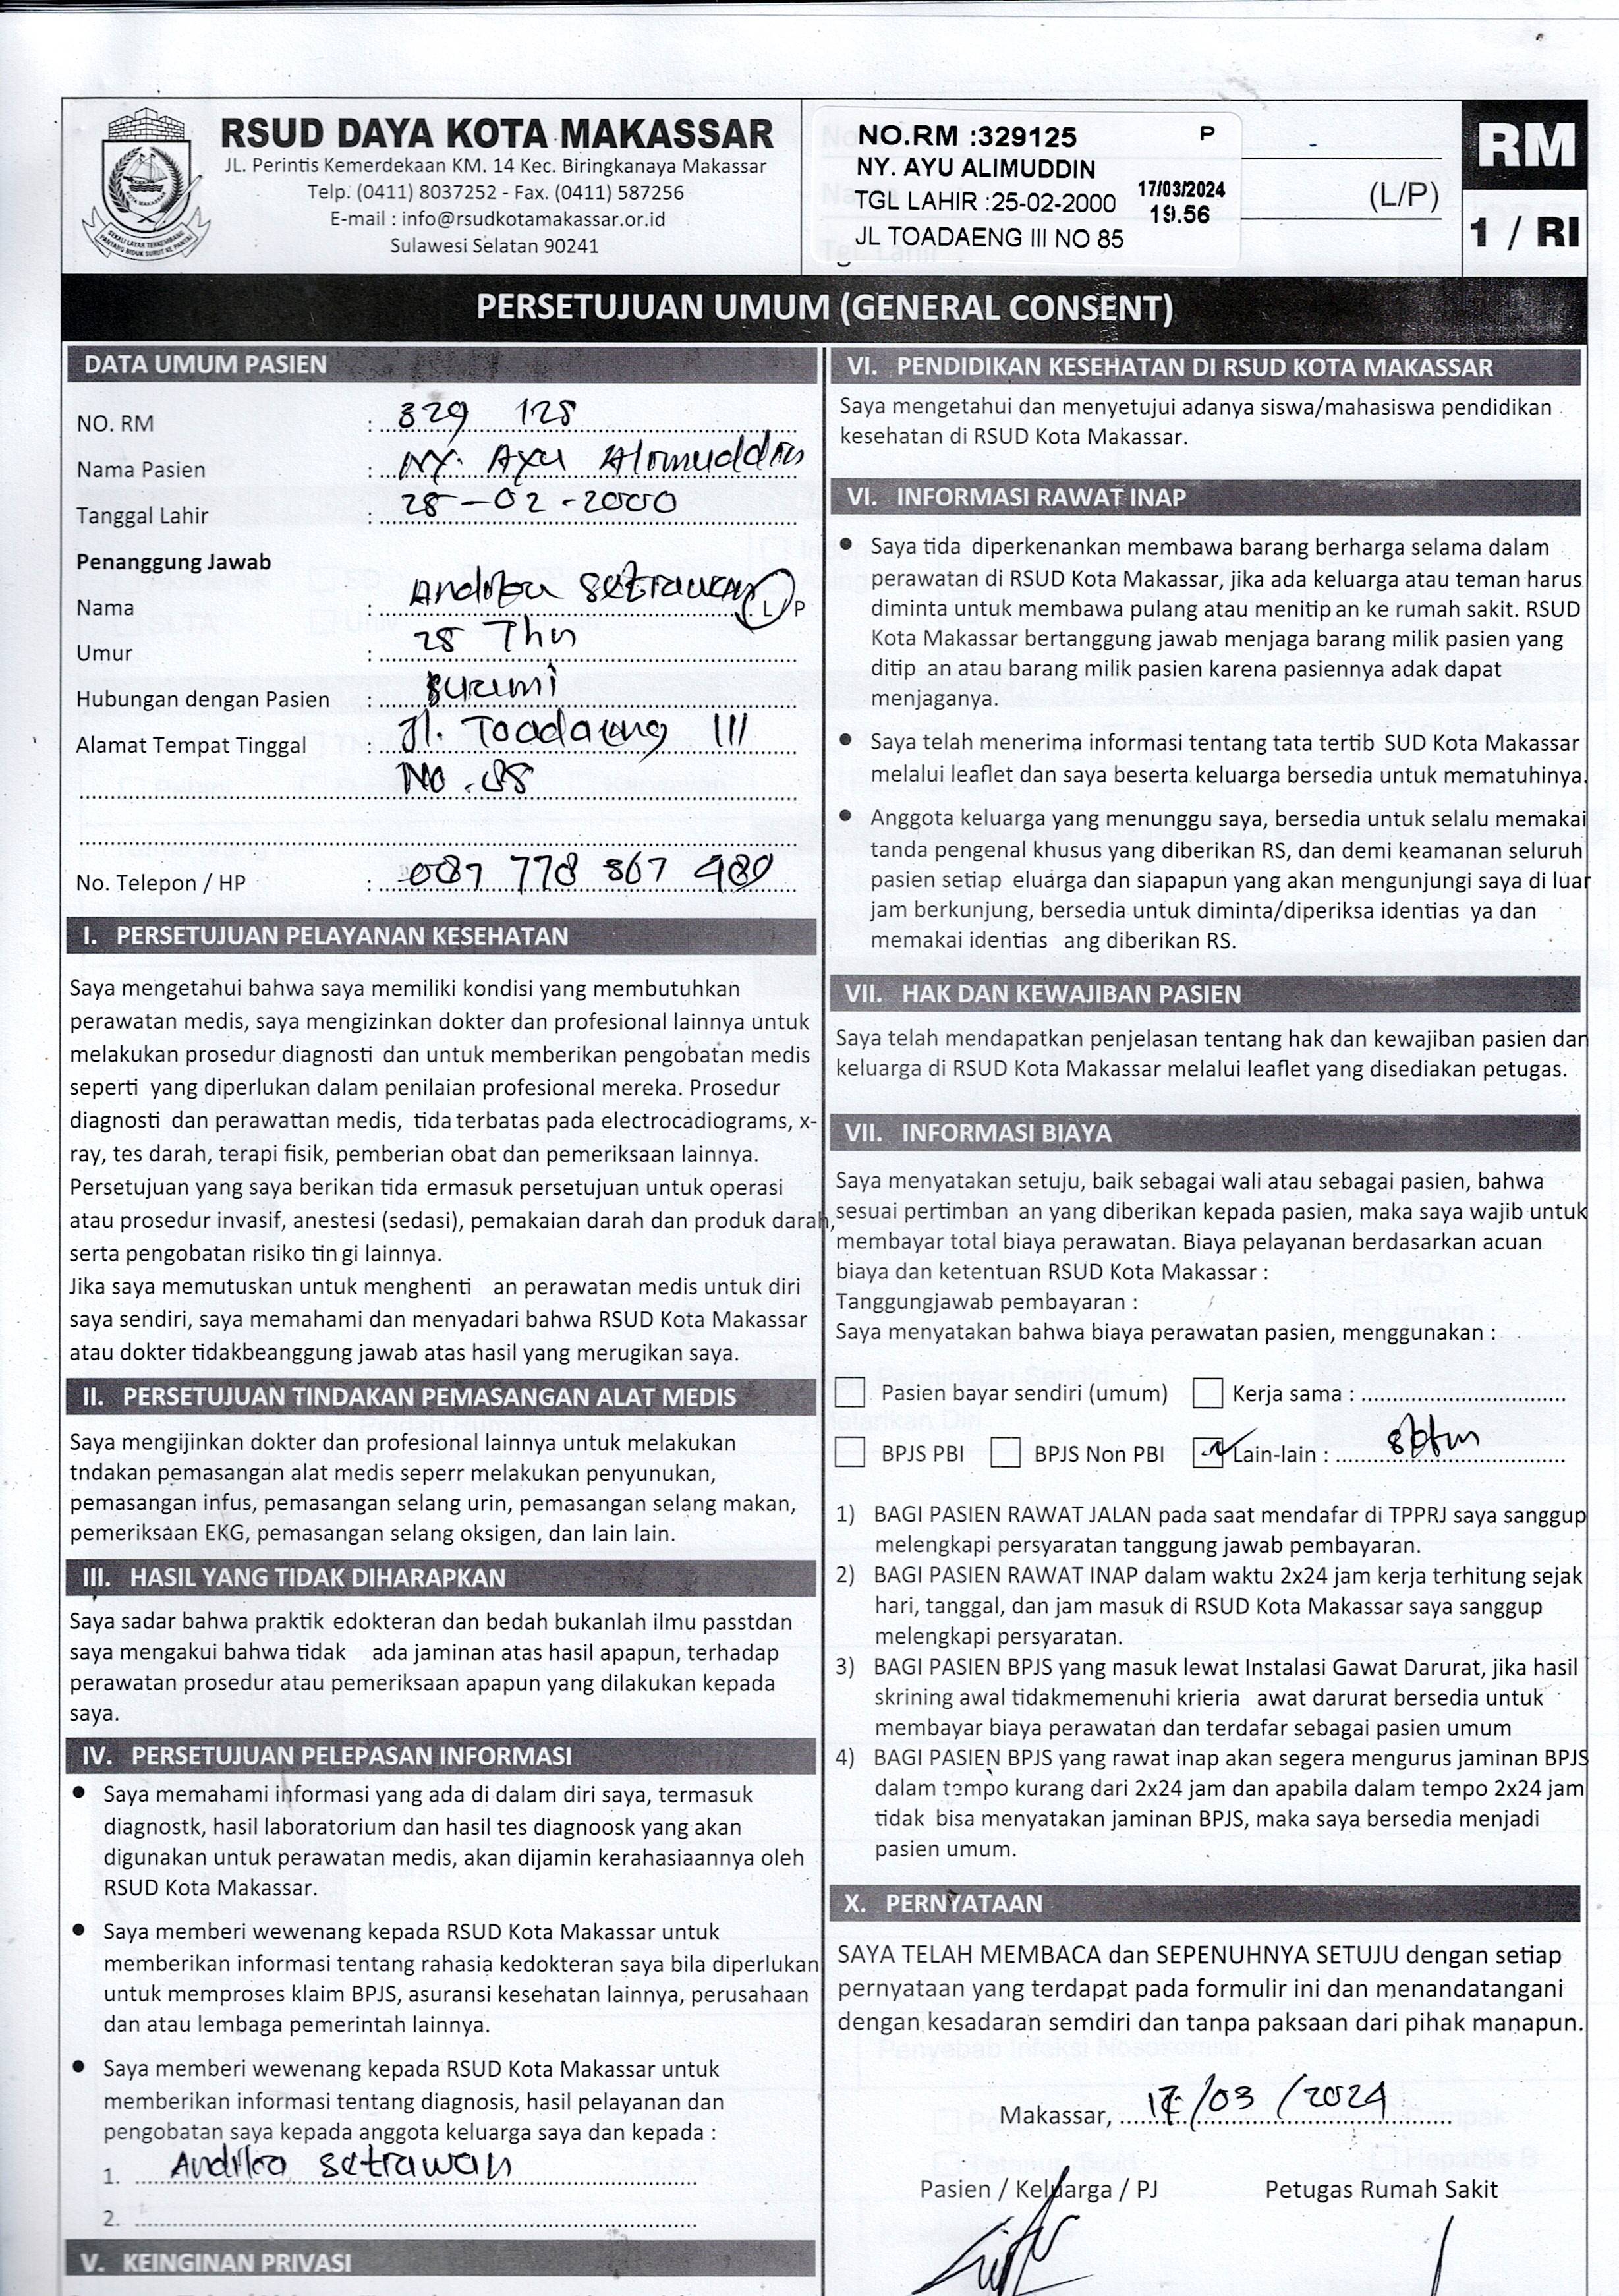 RSUD DAYA KOTA MAKASSAR
JL. Perintis Kemerdekaan KM. 14 Kec. Biringkanaya Makassar
Telp. (0411) 8037252 - Fax. (0411) 587256
E-mail : info@rsudkotamakassar.or.id
Sulawesi Selatan 90241
NO.RM :329125 P
NY. AYU ALIMUDDIN
TGL LAHIR :25-02-2000
17/03/2024
19.56
JL TOADAENG III NO 85
(L/P)
RM
1 / RI
PERSETUJUAN UMUM (GENERAL CONSENT)
DATA UMUM PASIEN
NO. RM : 329 125
Nama Pasien : NY. Ayu Alimuddin
Tanggal Lahir : 25-02-2000
Penanggung Jawab
Nama : Andika Setiawan L / P
Umur : 25 Thn
Hubungan dengan Pasien : Suami
Alamat Tempat Tinggal : Jl. Toadaeng III
No. 85
No. Telepon / HP : 087 778 867 480
I. PERSETUJUAN PELAYANAN KESEHATAN
Saya mengetahui bahwa saya memiliki kondisi yang membutuhkan
perawatan medis, saya mengizinkan dokter dan profesional lainnya untuk
melakukan prosedur diagnosti dan untuk memberikan pengobatan medis
seperti yang diperlukan dalam penilaian profesional mereka. Prosedur
diagnosti dan perawattan medis, tida terbatas pada electrocadiograms, x-
ray, tes darah, terapi fisik, pemberian obat dan pemeriksaan lainnya.
Persetujuan yang saya berikan tida ermasuk persetujuan untuk operasi
atau prosedur invasif, anestesi (sedasi), pemakaian darah dan produk darah,
serta pengobatan risiko tin gi lainnya.
Jika saya memutuskan untuk menghenti an perawatan medis untuk diri
saya sendiri, saya memahami dan menyadari bahwa RSUD Kota Makassar
atau dokter tidakbeanggung jawab atas hasil yang merugikan saya.
II. PERSETUJUAN TINDAKAN PEMASANGAN ALAT MEDIS
Saya mengijinkan dokter dan profesional lainnya untuk melakukan
tndakan pemasangan alat medis seperr melakukan penyunukan,
pemasangan infus, pemasangan selang urin, pemasangan selang makan,
pemeriksaan EKG, pemasangan selang oksigen, dan lain lain.
III. HASIL YANG TIDAK DIHARAPKAN
Saya sadar bahwa praktik edokteran dan bedah bukanlah ilmu passtdan
saya mengakui bahwa tidak ada jaminan atas hasil apapun, terhadap
perawatan prosedur atau pemeriksaan apapun yang dilakukan kepada
saya.
IV. PERSETUJUAN PELEPASAN INFORMASI
● Saya memahami informasi yang ada di dalam diri saya, termasuk
diagnostk, hasil laboratorium dan hasil tes diagnoosk yang akan
digunakan untuk perawatan medis, akan dijamin kerahasiaannya oleh
RSUD Kota Makassar.
● Saya memberi wewenang kepada RSUD Kota Makassar untuk
memberikan informasi tentang rahasia kedokteran saya bila diperlukan
untuk memproses klaim BPJS, asuransi kesehatan lainnya, perusahaan
dan atau lembaga pemerintah lainnya.
● Saya memberi wewenang kepada RSUD Kota Makassar untuk
memberikan informasi tentang diagnosis, hasil pelayanan dan
pengobatan saya kepada anggota keluarga saya dan kepada :
1. Andika Setiawan
2.
V. KEINGINAN PRIVASI
VI. PENDIDIKAN KESEHATAN DI RSUD KOTA MAKASSAR
Saya mengetahui dan menyetujui adanya siswa/mahasiswa pendidikan
kesehatan di RSUD Kota Makassar.
VI. INFORMASI RAWAT INAP
● Saya tida diperkenankan membawa barang berharga selama dalam
perawatan di RSUD Kota Makassar, jika ada keluarga atau teman harus
diminta untuk membawa pulang atau menitip an ke rumah sakit. RSUD
Kota Makassar bertanggung jawab menjaga barang milik pasien yang
ditip an atau barang milik pasien karena pasiennya adak dapat
menjaganya.
● Saya telah menerima informasi tentang tata tertib SUD Kota Makassar
melalui leaflet dan saya beserta keluarga bersedia untuk mematuhinya.
● Anggota keluarga yang menunggu saya, bersedia untuk selalu memakai
tanda pengenal khusus yang diberikan RS, dan demi keamanan seluruh
pasien setiap eluarga dan siapapun yang akan mengunjungi saya di luar
jam berkunjung, bersedia untuk diminta/diperiksa identias ya dan
memakai identias ang diberikan RS.
VII. HAK DAN KEWAJIBAN PASIEN
Saya telah mendapatkan penjelasan tentang hak dan kewajiban pasien dan
keluarga di RSUD Kota Makassar melalui leaflet yang disediakan petugas.
VII. INFORMASI BIAYA
Saya menyatakan setuju, baik sebagai wali atau sebagai pasien, bahwa
sesuai pertimban an yang diberikan kepada pasien, maka saya wajib untuk
membayar total biaya perawatan. Biaya pelayanan berdasarkan acuan
biaya dan ketentuan RSUD Kota Makassar :
Tanggungjawab pembayaran :
Saya menyatakan bahwa biaya perawatan pasien, menggunakan :
Pasien bayar sendiri (umum) Kerja sama :
BPJS PBI BPJS Non PBI Lain-lain :
1) BAGI PASIEN RAWAT JALAN pada saat mendafar di TPPRJ saya sanggup
melengkapi persyaratan tanggung jawab pembayaran.
2) BAGI PASIEN RAWAT INAP dalam waktu 2x24 jam kerja terhitung sejak
hari, tanggal, dan jam masuk di RSUD Kota Makassar saya sanggup
melengkapi persyaratan.
3) BAGI PASIEN BPJS yang masuk lewat Instalasi Gawat Darurat, jika hasil
skrining awal tidakmemenuhi krieria awat darurat bersedia untuk
membayar biaya perawatan dan terdafar sebagai pasien umum
4) BAGI PASIEN BPJS yang rawat inap akan segera mengurus jaminan BPJS
dalam tempo kurang dari 2x24 jam dan apabila dalam tempo 2x24 jam
tidak bisa menyatakan jaminan BPJS, maka saya bersedia menjadi
pasien umum.
X. PERNYATAAN
SAYA TELAH MEMBACA dan SEPENUHNYA SETUJU dengan setiap
pernyataan yang terdapat pada formulir ini dan menandatangani
dengan kesadaran semdiri dan tanpa paksaan dari pihak manapun.
Makassar, 17/03/2024
Pasien / Keluarga / PJ Petugas Rumah Sakit